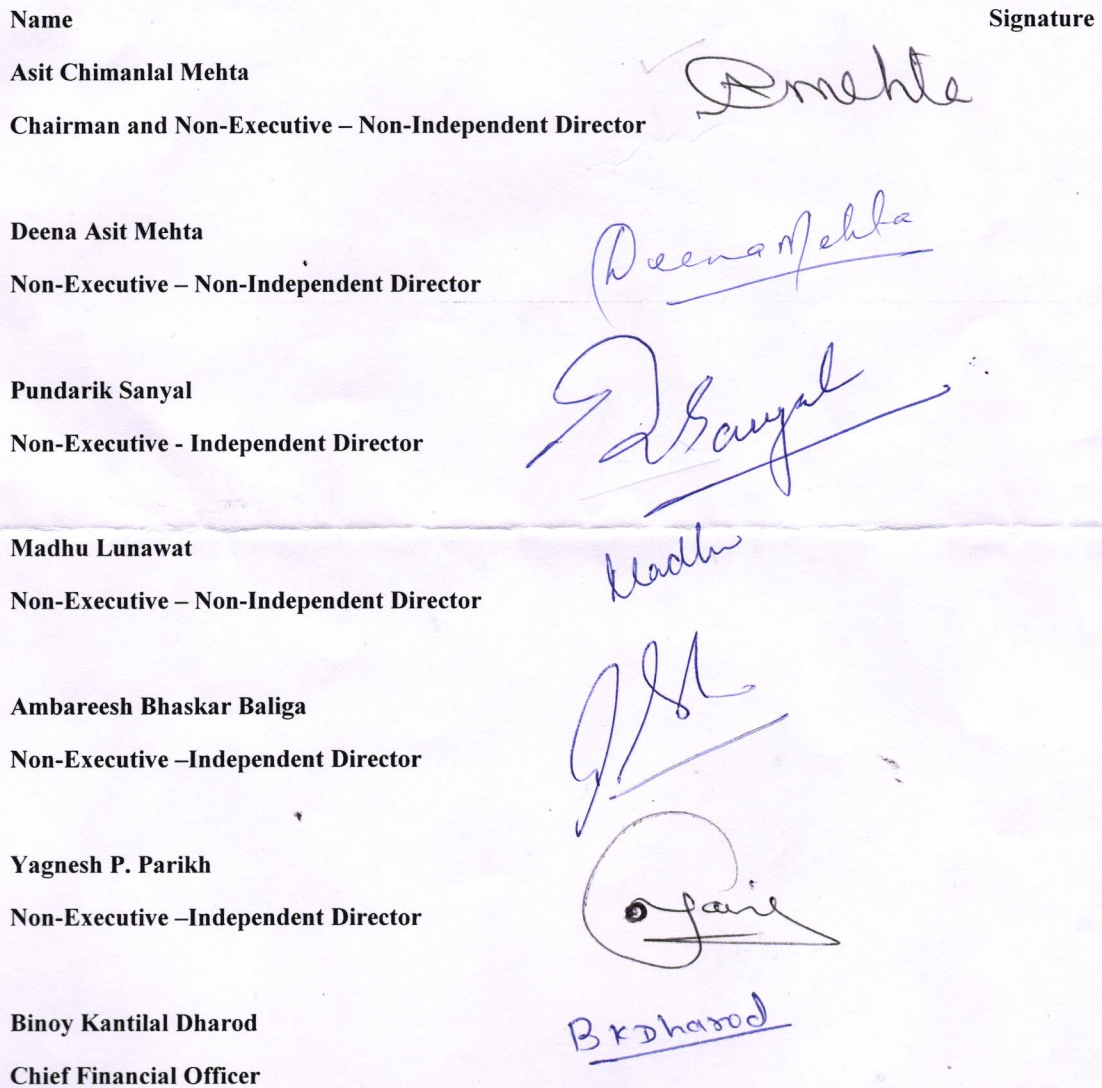 Name Signature
Asit Chimanlal Mehta
Amehta
Chairman and Non-Executive – Non-Independent Director
Deena Asit Mehta
Deena Mehta
Non-Executive – Non-Independent Director
Pundarik Sanyal
Sanyal
Non-Executive - Independent Director
Madhu Lunawat
Madhu
Non-Executive – Non-Independent Director
Ambareesh Bhaskar Baliga
Non-Executive –Independent Director
Yagnesh P. Parikh
Non-Executive –Independent Director
Binoy Kantilal Dharod
BKDharod
Chief Financial Officer